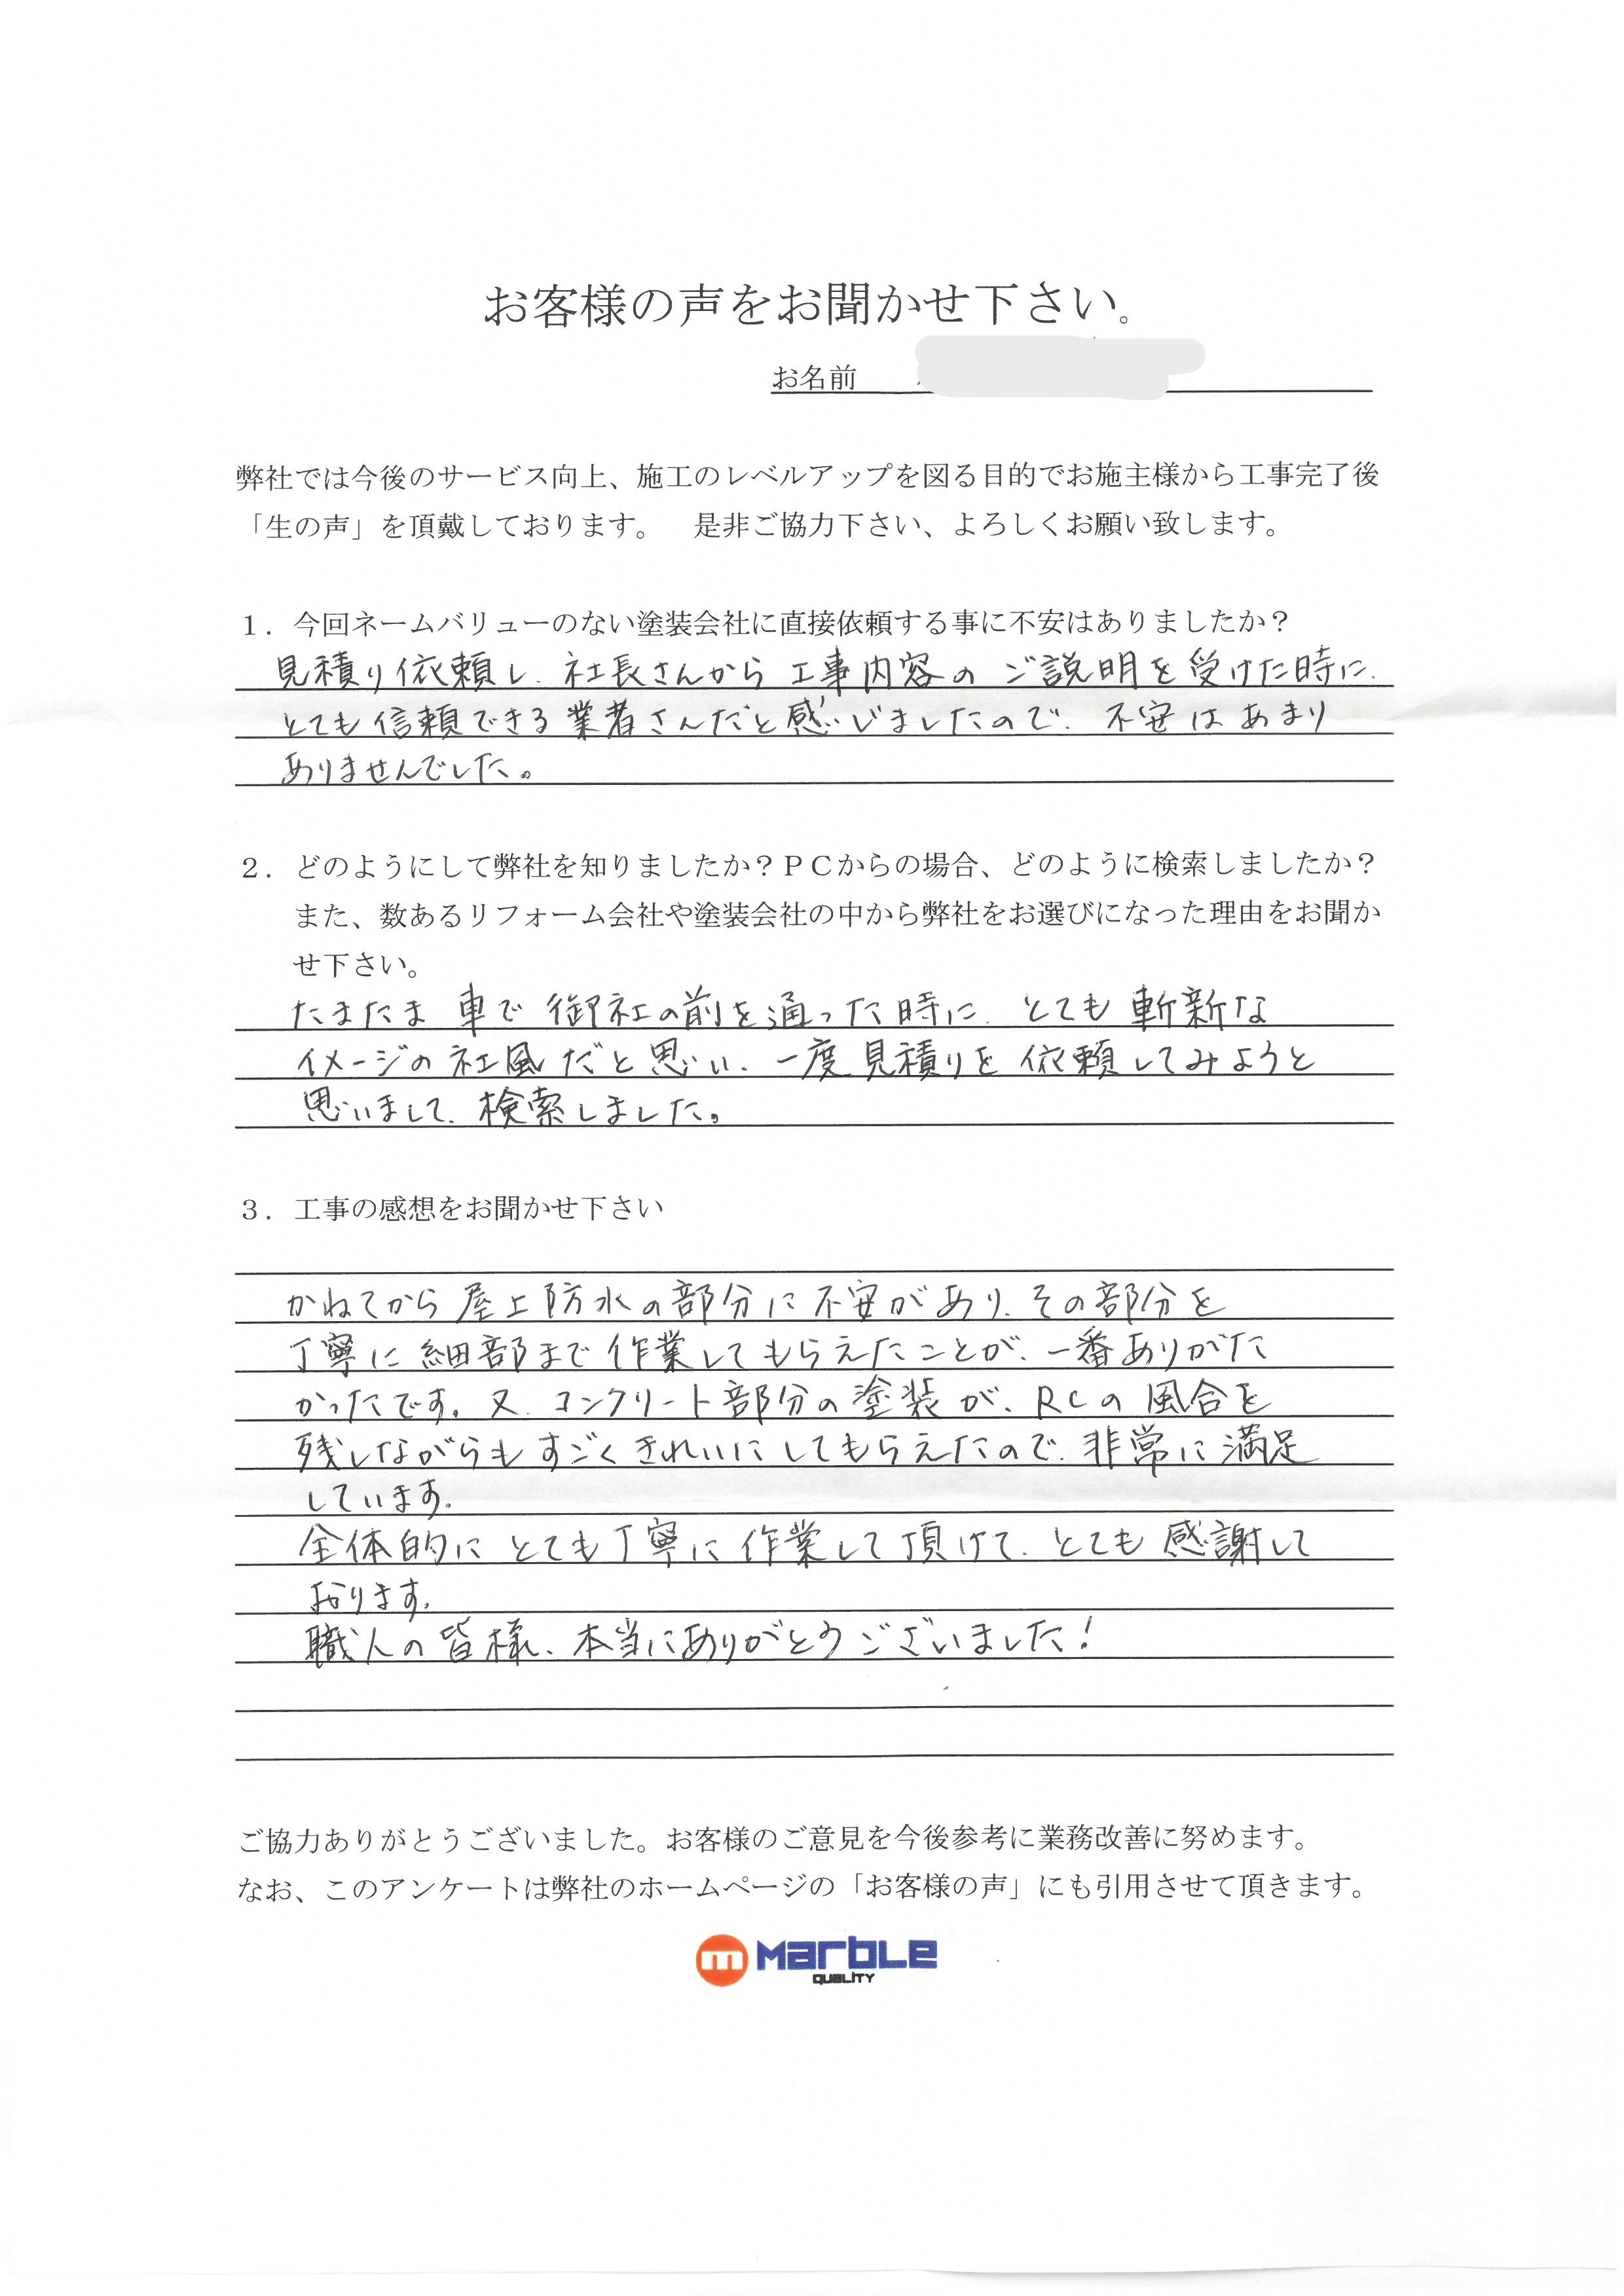 お客様の声をお聞かせ下さい。
お名前
弊社では今後のサービス向上、施工のレベルアップを図る目的でお施主様から工事完了後
「生の声」を頂戴しております。　是非ご協力下さい、よろしくお願い致します。
１．今回ネームバリューのない塗装会社に直接依頼する事に不安はありましたか？
見積り依頼し、社長さんから工事内容のご説明を受けた時に、
とても信頼できる業者さんだと感じましたので、不安はあまり
ありませんでした。
２．どのようにして弊社を知りましたか？ＰＣからの場合、どのように検索しましたか？
また、数あるリフォーム会社や塗装会社の中から弊社をお選びになった理由をお聞か
せ下さい。
たまたま車で御社の前を通った時に、とても斬新な
イメージの社風だと思い、一度見積りを依頼してみようと
思いまして、検索しました。
３．工事の感想をお聞かせ下さい
かねてから屋上防水の部分に不安があり、その部分を
丁寧に細部まで作業してもらえたことが、一番ありがた
かったです。又、コンクリート部分の塗装が、RCの風合を
残しながらもすごくきれいにしてもらえたので、非常に満足
しています。
全体的にとても丁寧に作業して頂けて、とても感謝して
おります。
職人の皆様、本当にありがとうございました！
ご協力ありがとうございました。お客様のご意見を今後参考に業務改善に努めます。
なお、このアンケートは弊社のホームページの「お客様の声」にも引用させて頂きます。
m Marble
QUALITY